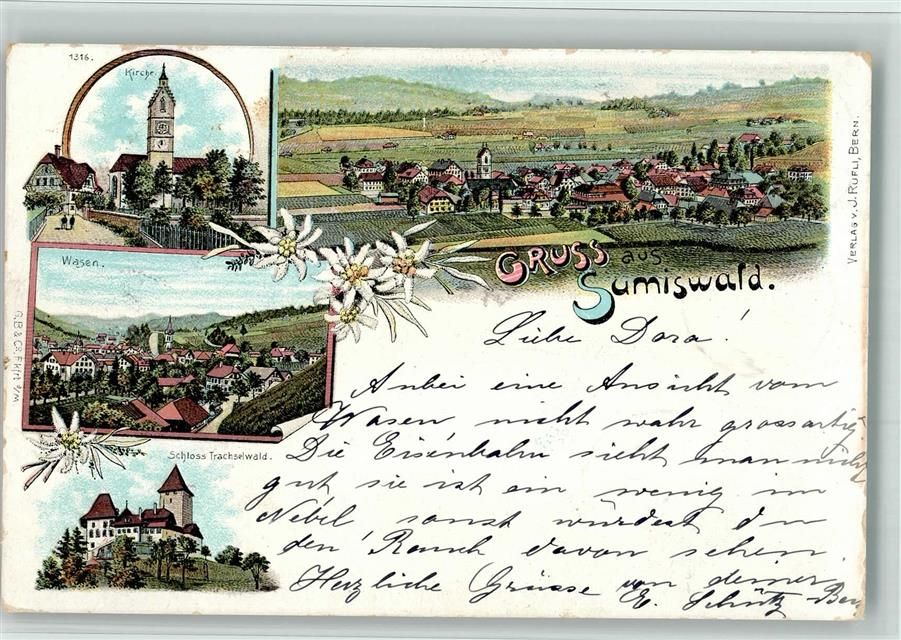 1316.
Kirche.
Wasen.
Schloss Trachselwald.
G.B & Co. Fkfrt a/M
VERLAG V. J. RUFLI, BERN.
GRUSS aus
Sumiswald.
Liebe Dora!
Anbei eine Ansicht vom
Wasen nicht wahr grossartig
Die Eisenbahn sieht man nicht
gut sie ist ein wenig im
Nebel sonst würdest du
den Rauch davon sehen
Herzliche Grüsse von deiner
E. Schütz